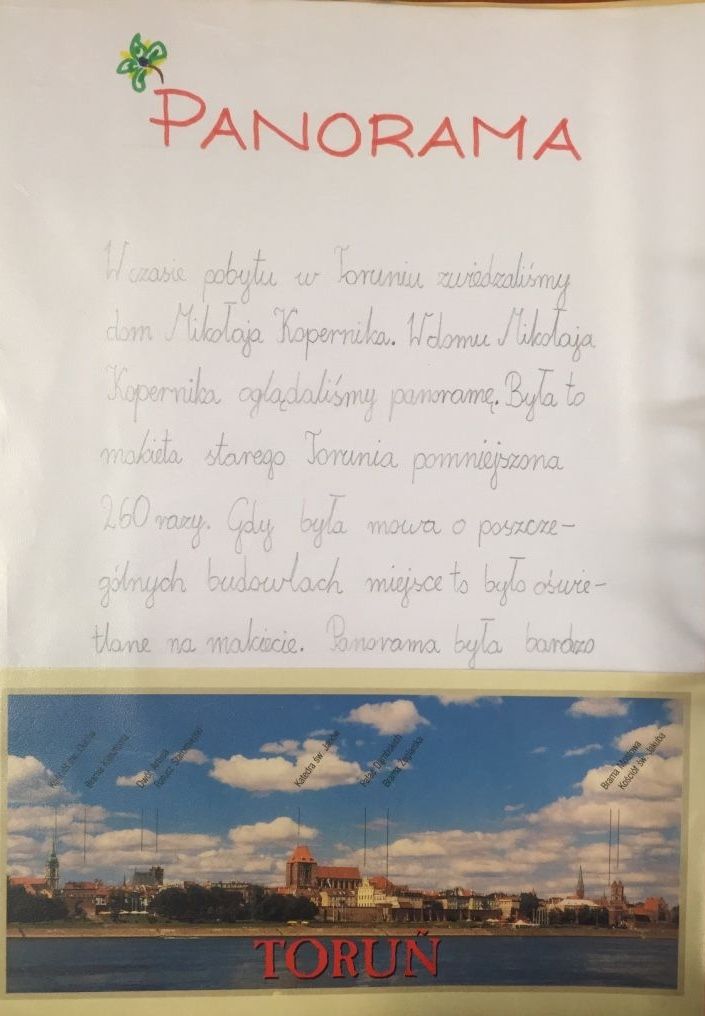 PANORAMA
W czasie pobytu w Toruniu zwiedzaliśmy
dom Mikołaja Kopernika. W domu Mikołaja
Kopernika oglądaliśmy panoramę. Była to
makieta starego Torunia pomniejszona
260 razy. Gdy była mowa o poszcze-
gólnych budowlach miejsce to było oświe-
tlane na makiecie. Panorama była bardzo
Kościół św. Ducha
Dwór Artusa
Katedra św. Janów
Brama Mostowa
Kościół św. Jakuba
TORUŃ